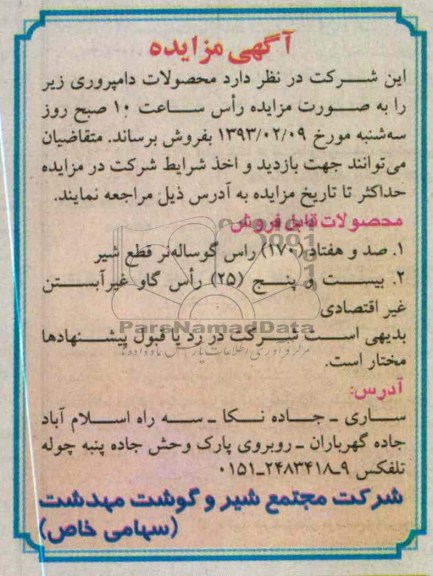 آگهی مزایده
این شرکت در نظر دارد محصولات دامپروری زیر
را به صورت مزایده رأس ساعت ۱۰ صبح روز
سه‌شنبه مورخ ۱۳۹۳/۰۲/۰۹ بفروش برساند. متقاضیان
می‌توانند جهت بازدید و اخذ شرایط شرکت در مزایده
حداکثر تا تاریخ مزایده به آدرس ذیل مراجعه نمایند.
محصولات قابل فروش
۱. صد و هفتاد (۱۷۰) راس گوساله‌نر قطع شیر
۲. بیست و پنج (۲۵) رأس گاو غیرآبستن
غیر اقتصادی
ParsNamadData
بدیهی است شرکت در رد یا قبول پیشنهادها
مختار است.
آدرس:
ساری ـ جاده نکا ـ سه راه اسلام آباد
جاده گهرباران ـ روبروی پارک وحش جاده پنبه چوله
تلفکس ۹ـ۲۴۸۳۴۱۸ـ۰۱۵۱
شرکت مجتمع شیر و گوشت مهدشت
(سهامی خاص)